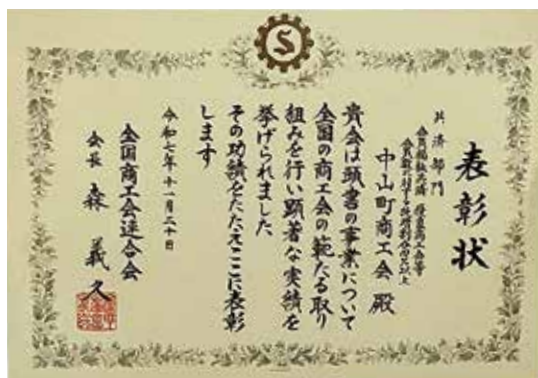 S
表彰状
共済部門
会員福祉共済 優良商工会等
中山町商工会 殿
貴会は頭書の事業について
全国の商工会の範たる取り
組みを行い顕著な実績を
挙げられました
その功績をたたえここに表彰
します
令和七年十一月二十日
全国商工会連合会
会長 森 義久